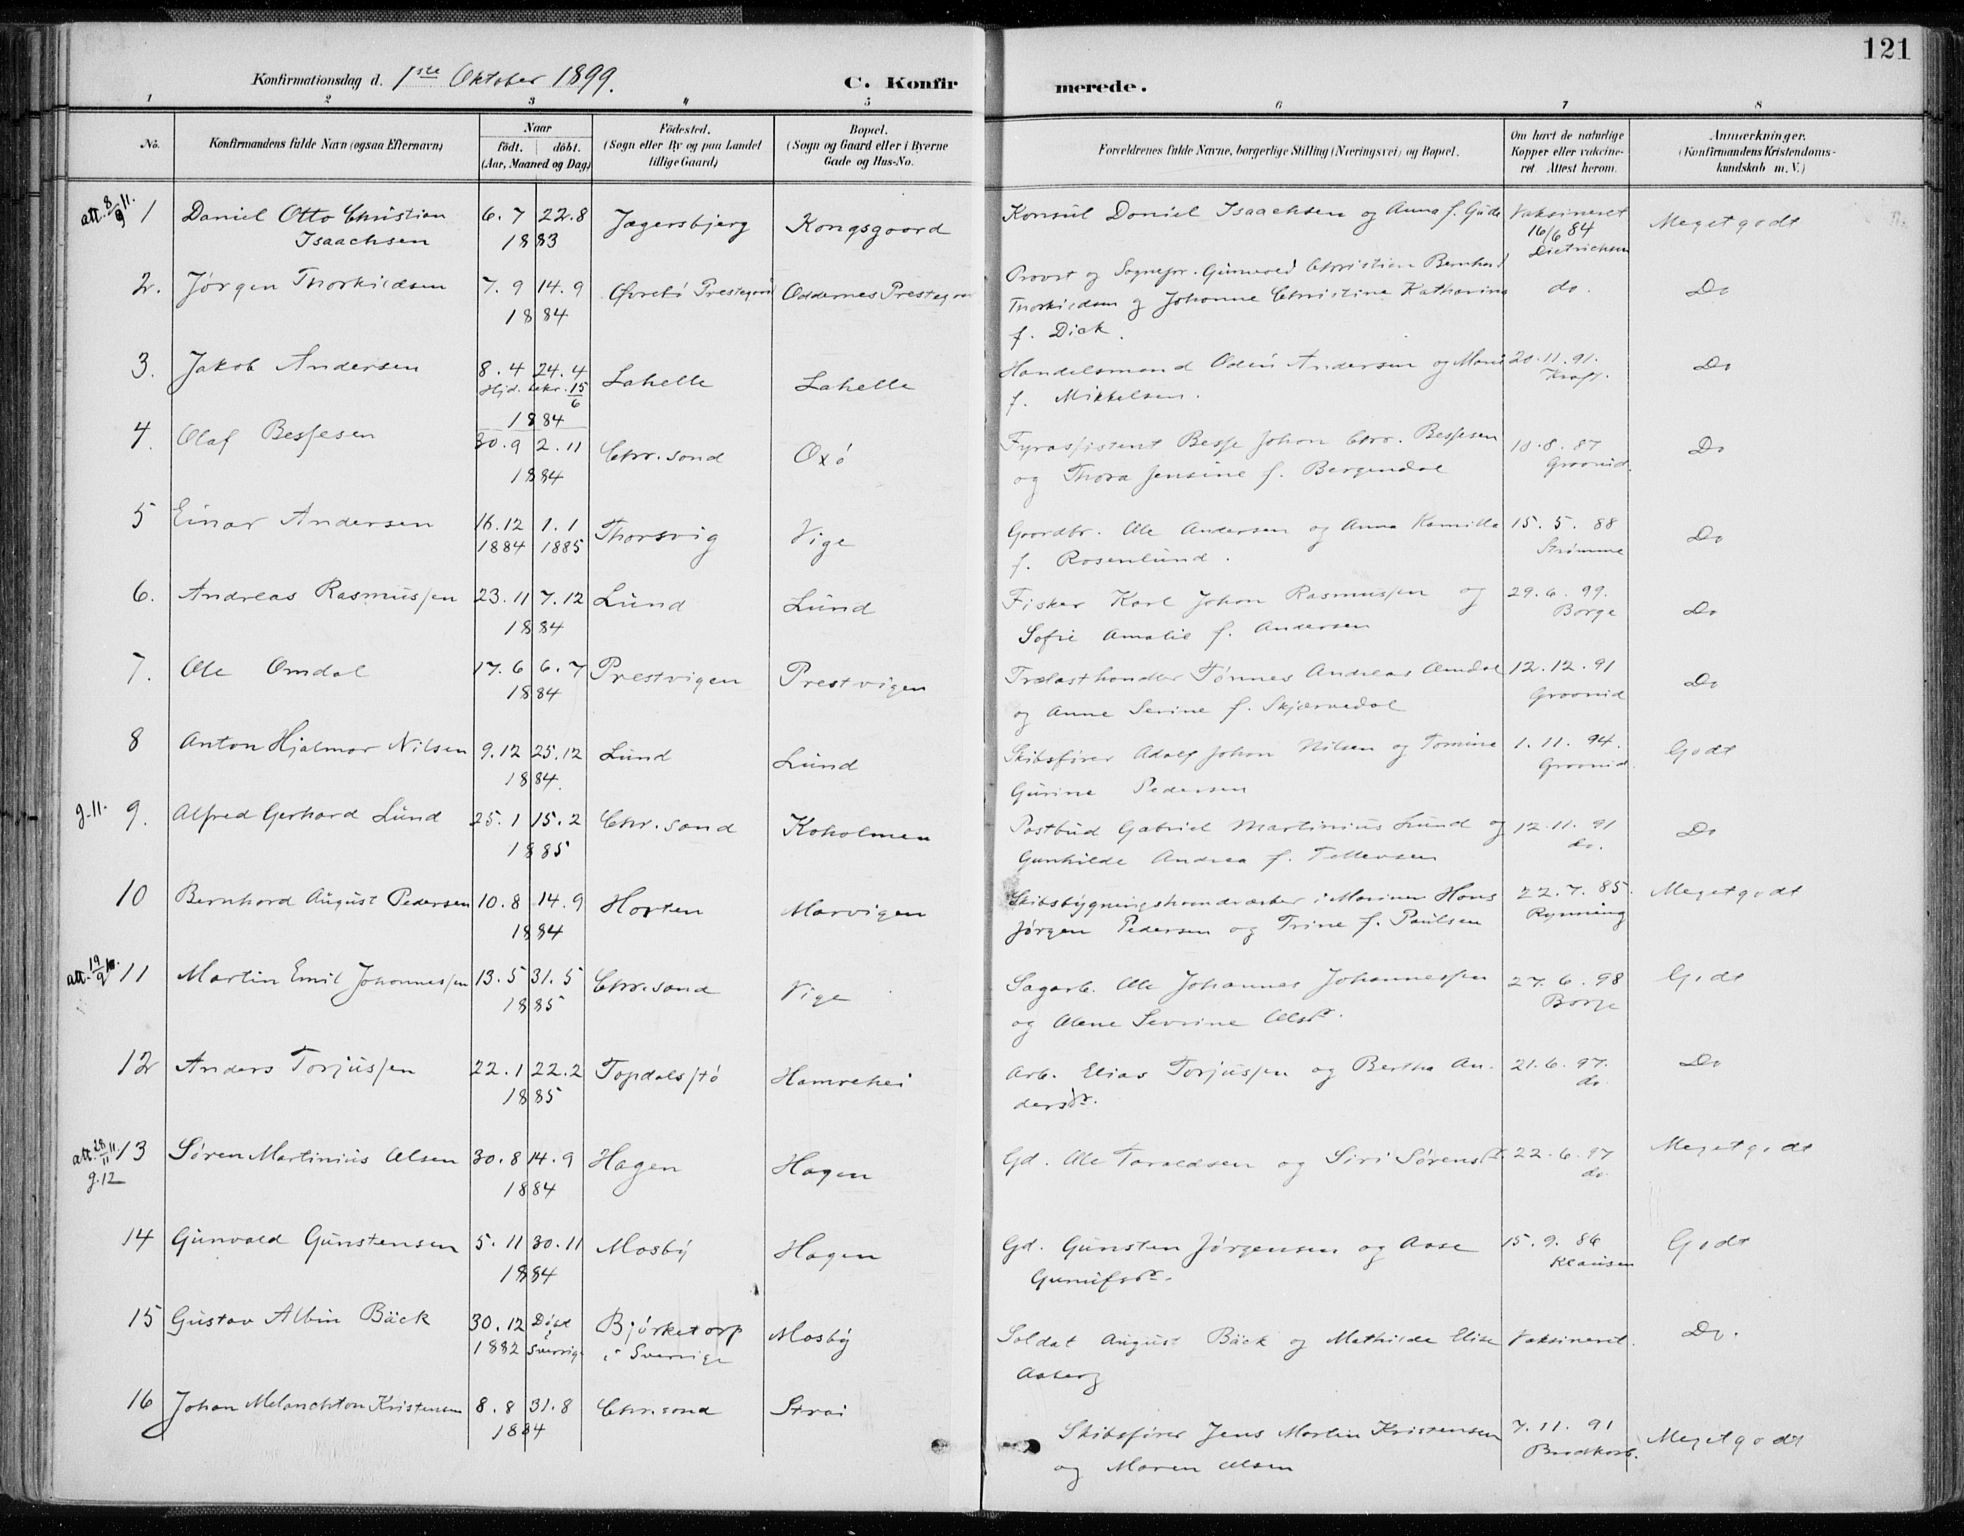 121
Konfirmationsdag d. 1ste Oktober 1899.
C. Konfirmerede.
1 2 3 4 5 6 7 8
No.
Konfirmandens fulde Navn (ogsaa Efternavn)
Naar
født. døbt.
(Aar, Maaned og Dag)
Fødested.
(Sogn eller By og paa Landet
tillige Gaard)
Bopæl.
(Sogn og Gaard eller i Byerne
Gade og Hus-No.
Forældrenes fulde Navne, borgerlige Stilling (Næringsvei) og Bopæl.
Om havt de naturlige
Kopper eller vakcine-
ret. Attest herom.
Anmærkninger.
(Konfirmandens Kristendoms-
kundskab m. V.)
att. 8/9 11. 1 Daniel Otto Christian 6.7 22.8 Jægersbjerg Kongsgaard Konsul Daniel Isaachsen og Anna f. Gude Vaksineret Meget godt
Isaachsen 1883 16/6 84
Dietrichson
2. Jørgen Thorkildsen 7.9 14.9 Øvrebø Prestegaard Oddernes Prestegaard Provst og Sognepr. Gunvald Christian Bernhard do. Do
1884 Thorkildsen og Johanne Christine Katharina
f. Dick.
3. Jakob Andersen 8.4 24.4 Lahelle Lahelle Handelsmand Odin Andersen og Marie 20.11.91. Do
Hjd. bekr. 15/6 f. Mikkelsen. Kraft.
1884
4. Olaf Bessesen 30.9 2.11 Chr.sand Oxø Fyrassistent Besse Johan Chr. Bessesen 10.8.87 Do
1884 og Thora Jensine f. Bergendal Groonid.
5 Einar Andersen 16.12 1.1 Thorsvig Vige Gaardbr. Ole Andersen og Anna Kamilla 15.5.88 Do
1884 1885 f. Rosenlund. Strømme
6. Andreas Rasmussen 23.11 7.12 Lund Lund Fisker Karl Johan Rasmussen og 29.6.99. Do
1884 Sofie Amalie f. Andersen Borge
7. Ole Omdal 17.6 6.7 Prestvigen Prestvigen Trælasthandler Tønnes Andreas Omdal 12.12.91 Do
1884 og Anne Serine f. Skjævedal Groonid
8 Anton Hjalmar Nilsen 9.12 25.12 Lund Lund Skibsfører Adolf Johan Nilsen og Tomine 1.11.94. Godt
1884. Gurine Pedersen Groonid.
g.11. 9. Alfred Gerhard Lund 25.1 15.2 Chr.sand Koholmen Postbud Gabriel Martinius Lund og 12.11.91 Do
1885 Gunhilde Andrea f. Tellevsen do.
10 Bernhard August Pedersen 10.8 14.9 Horten Marvigen Skibsbygningshaandværker i Marinen Hans 22.7.85. Meget godt
1884 Jørgen Pedersen og Trine f. Paulsen Rynning
att. 19/9 11 Martin Emil Johannessen 13.5 31.5 Chr.sand Vige Sagarb. Ole Johannes Johannessen 27.6.98 Godt
1885 og Alene Sevrine Olsdr. Borge
12 Anders Torjussen 22.1 22.2 Topdalsstø Hamrehei Arb. Elias Torjussen og Bertha An- 21.6.97. Do
1885 dersdr. do.
att. 28/11 11. 13 Søren Martinius Olsen 30.8 14.9 Hagen Hagen Gd. Ole Taraldsen og Siri Sørensdr. 22.6.97 Meget godt
g.12 1884 do.
14 Gunvald Gunstensen 5.11 30.11 Mosby Hagen Gd. Gunsten Jørgensen og Aase 15.9.86 Godt
1884 Gunulfsdr. Klausen
15 Gustav Albin Bäck 30.12 Døbt Bjørketorp Mosby Soldat August Bäck og Mathilde Elise Vaksineret. Do.
1882 i Sverrige i Sverrige Aaberg
16 Johan Melanchton Kristensen 8.8 31.8 Chr.sand Strai Skibsfører Jens Martin Kristensen 7.11.91 Meget godt
1884 og Maren Olsen Brodkorb.